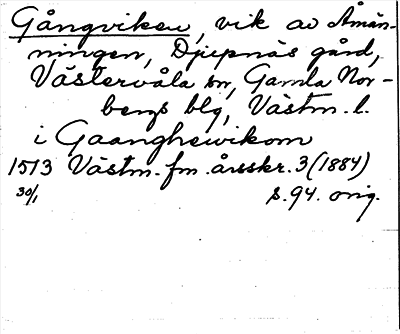 Gångviken, vik av Åmän-
ningen, Djupnäs gård,
Västervåla sn, Gamla Nor-
bergs blg, Västm. l.
i Gaanghewikom
1513 Västm. fm. årsskr. 3 (1884)
30/1 s. 94. orig.